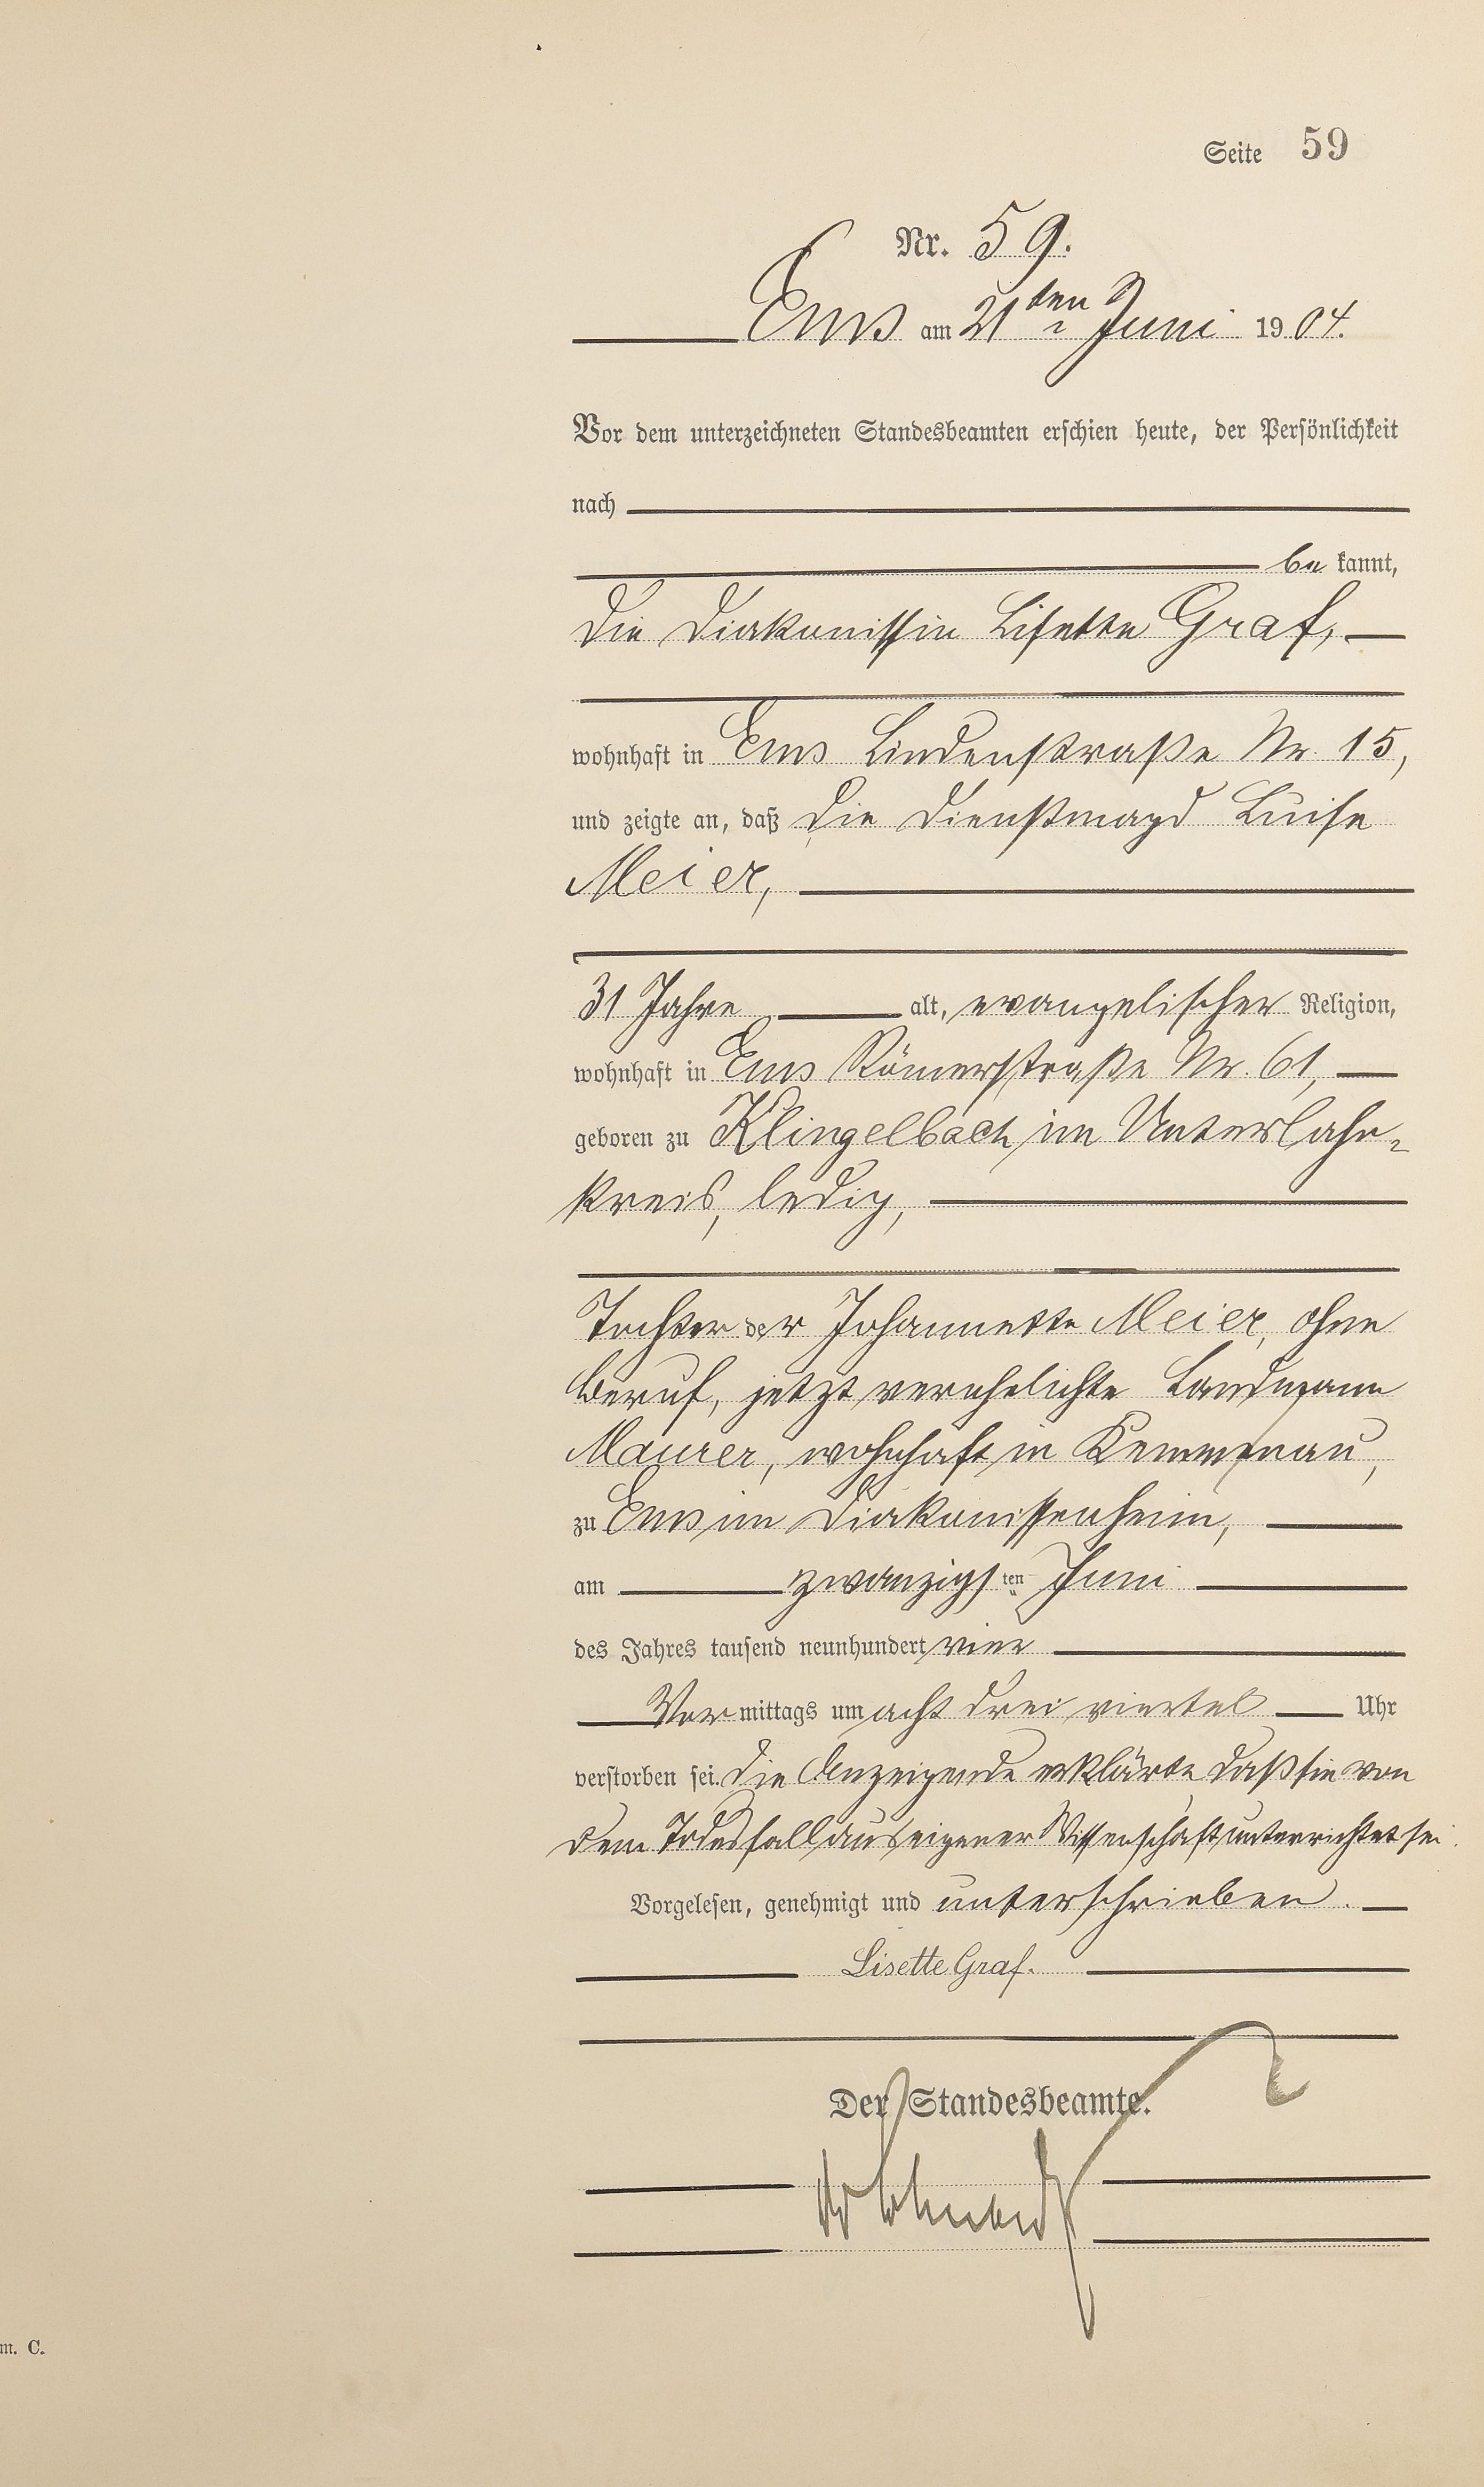 Seite 59
Nr. 59.
Ems am 21ten Juni 1904.
Vor dem unterzeichneten Standesbeamten erschien heute, der Persönlichkeit
nach
bekannt,
die Diakonissin Lisette Graf,
wohnhaft in Ems Lindenstraße Nr. 15,
und zeigte an, daß die Dienstmagd Luise
Meier,
31 Jahre alt, evangelischer Religion,
wohnhaft in Ems Römerstraße Nr. 61,
geboren zu Klingelbach im Unterlahn-
kreis, ledig,
Tochter der Johannette Meier, ohne
Beruf, jetzt verehelichte Landmann
Maurer, wohnhaft in Kemmenau,
zu Ems im Diakonissenheim,
am zwanzigsten Juni
des Jahres tausend neunhundert vier
Vormittags um acht drei viertel Uhr
verstorben sei. Die Anzeigende erklärte daß sie von
dem Todesfall aus eigener Wissenschaft unterrichtet sei.
Vorgelesen, genehmigt und unterschrieben.
Lisette Graf.
Der Standesbeamte.
m. C.